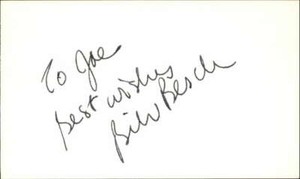 To Joe
Best wishes
Bibi Besch